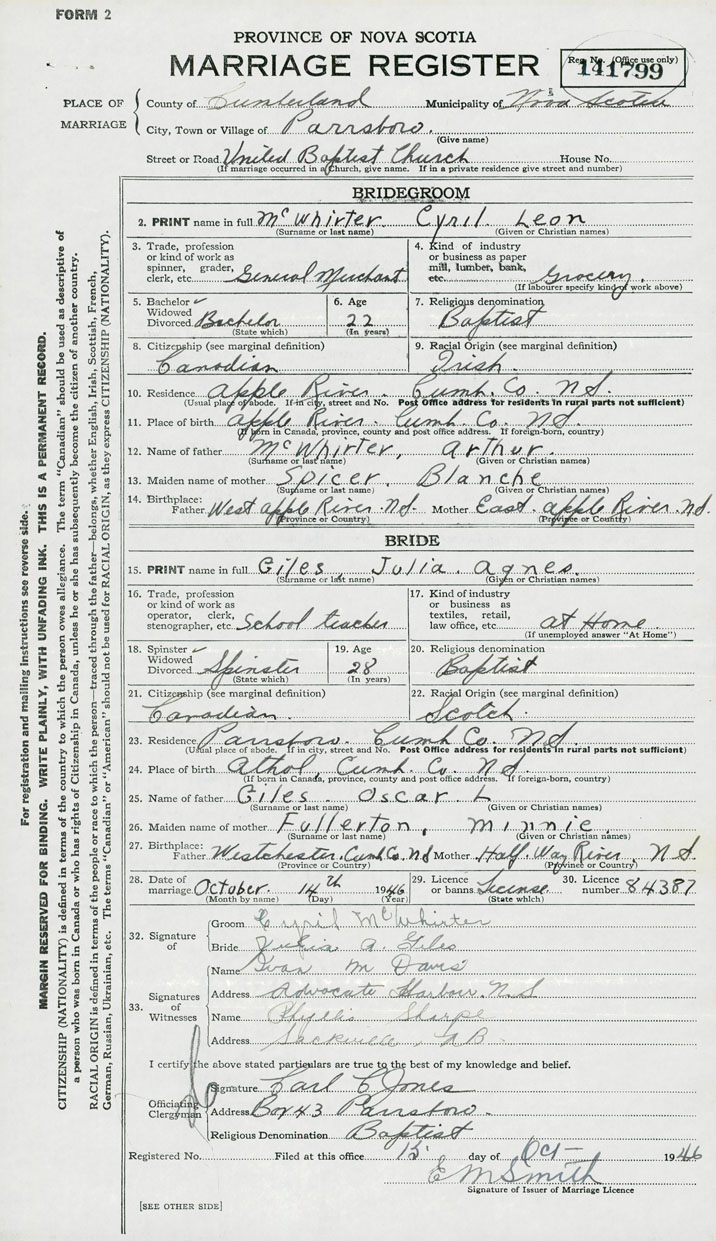 FORM 2
PROVINCE OF NOVA SCOTIA
MARRIAGE REGISTER
Reg. No. (Office use only)
141799
PLACE OF MARRIAGE
County of Cumberland Municipality of Nova Scotia
City, Town or Village of Parrsboro.
(Give name)
Street or Road United Baptist Church House No.
(If marriage occurred in a church, give name. If in a private residence give street and number)
BRIDEGROOM
2. PRINT name in full McWhirter Cyril Leon
(Surname or last name) (Given or Christian names)
3. Trade, profession or kind of work as spinner, grader, clerk, etc. General Merchant
4. Kind of industry or business as paper mill, lumber, bank, etc. Grocery.
(If labourer specify kind of work above)
5. Bachelor ✓ Widowed Divorced Bachelor
(State which)
6. Age 22
(In years)
7. Religious denomination Baptist
8. Citizenship (see marginal definition) Canadian
9. Racial Origin (see marginal definition) Irish
10. Residence Apple River. Cumb. Co. N.S.
(Usual place of abode. If in city, street and No. Post Office address for residents in rural parts not sufficient)
11. Place of birth Apple River. Cumb. Co. N.S.
(If born in Canada, province, county and post office address. If foreign-born, country)
12. Name of father McWhirter, Arthur.
(Surname or last name) (Given or Christian names)
13. Maiden name of mother Spicer, Blanche
(Surname or last name) (Given or Christian names)
14. Birthplace: Father West Apple River. N.S. Mother East. Apple River. N.S.
(Province or Country) (Province or Country)
BRIDE
15. PRINT name in full Giles, Julia Agnes.
(Surname or last name) (Given or Christian names)
16. Trade, profession or kind of work as operator, clerk, stenographer, etc. School teacher
17. Kind of industry or business as textiles, retail, law office, etc. at Home
(If unemployed answer "At Home")
18. Spinster ✓ Widowed Divorced Spinster
(State which)
19. Age 28
(In years)
20. Religious denomination Baptist
21. Citizenship (see marginal definition) Canadian.
22. Racial Origin (see marginal definition) Scotch.
23. Residence Parrsboro. Cumb Co. N.S.
(Usual place of abode. If in city, street and No. Post Office address for residents in rural parts not sufficient)
24. Place of birth Athol, Cumb. Co. N.S.
(If born in Canada, province, county and post office address. If foreign-born, country)
25. Name of father Giles. Oscar. L
(Surname or last name) (Given or Christian names)
26. Maiden name of mother Fullerton, Minnie.
(Surname or last name) (Given or Christian names)
27. Birthplace: Father Westchester, Cumb. Co. N.S Mother Half. Way River. N.S.
(Province or Country) (Province or Country)
28. Date of marriage October. 14th 1946
(Month by name) (Day) (Year)
29. Licence or banns License
(State which)
30. Licence number 84387
32. Signature of
Groom Cyril McWhirter
Bride Julia A. Giles
33. Signatures of Witnesses
Name Ivan M Davis
Address Advocate Harbour. N.S
Name Phyllis Sharpe
Address Sackville N.B.
I certify the above stated particulars are true to the best of my knowledge and belief.
Officiating Clergyman
Signature Carl C Jones
Address Box 43 Parrsboro.
Religious Denomination Baptist
Registered No. Filed at this office 15 day of Oct- 1946
E M Smith
Signature of Issuer of Marriage Licence
[SEE OTHER SIDE]
For registration and mailing instructions see reverse side.
MARGIN RESERVED FOR BINDING. WRITE PLAINLY, WITH UNFADING INK. THIS IS A PERMANENT RECORD.
CITIZENSHIP (NATIONALITY) is defined in terms of the country to which the person owes allegiance. The term "Canadian" should be used as descriptive of
a person who was born in Canada or who has rights of Citizenship in Canada, unless he or she has subsequently become the citizen of another country.
RACIAL ORIGIN is defined in terms of the people or race to which the person—traced through the father—belongs, whether English, Irish, Scottish, French,
German, Russian, Ukrainian, etc. The terms "Canadian" or "American" should not be used for RACIAL ORIGIN, as they express CITIZENSHIP (NATIONALITY).